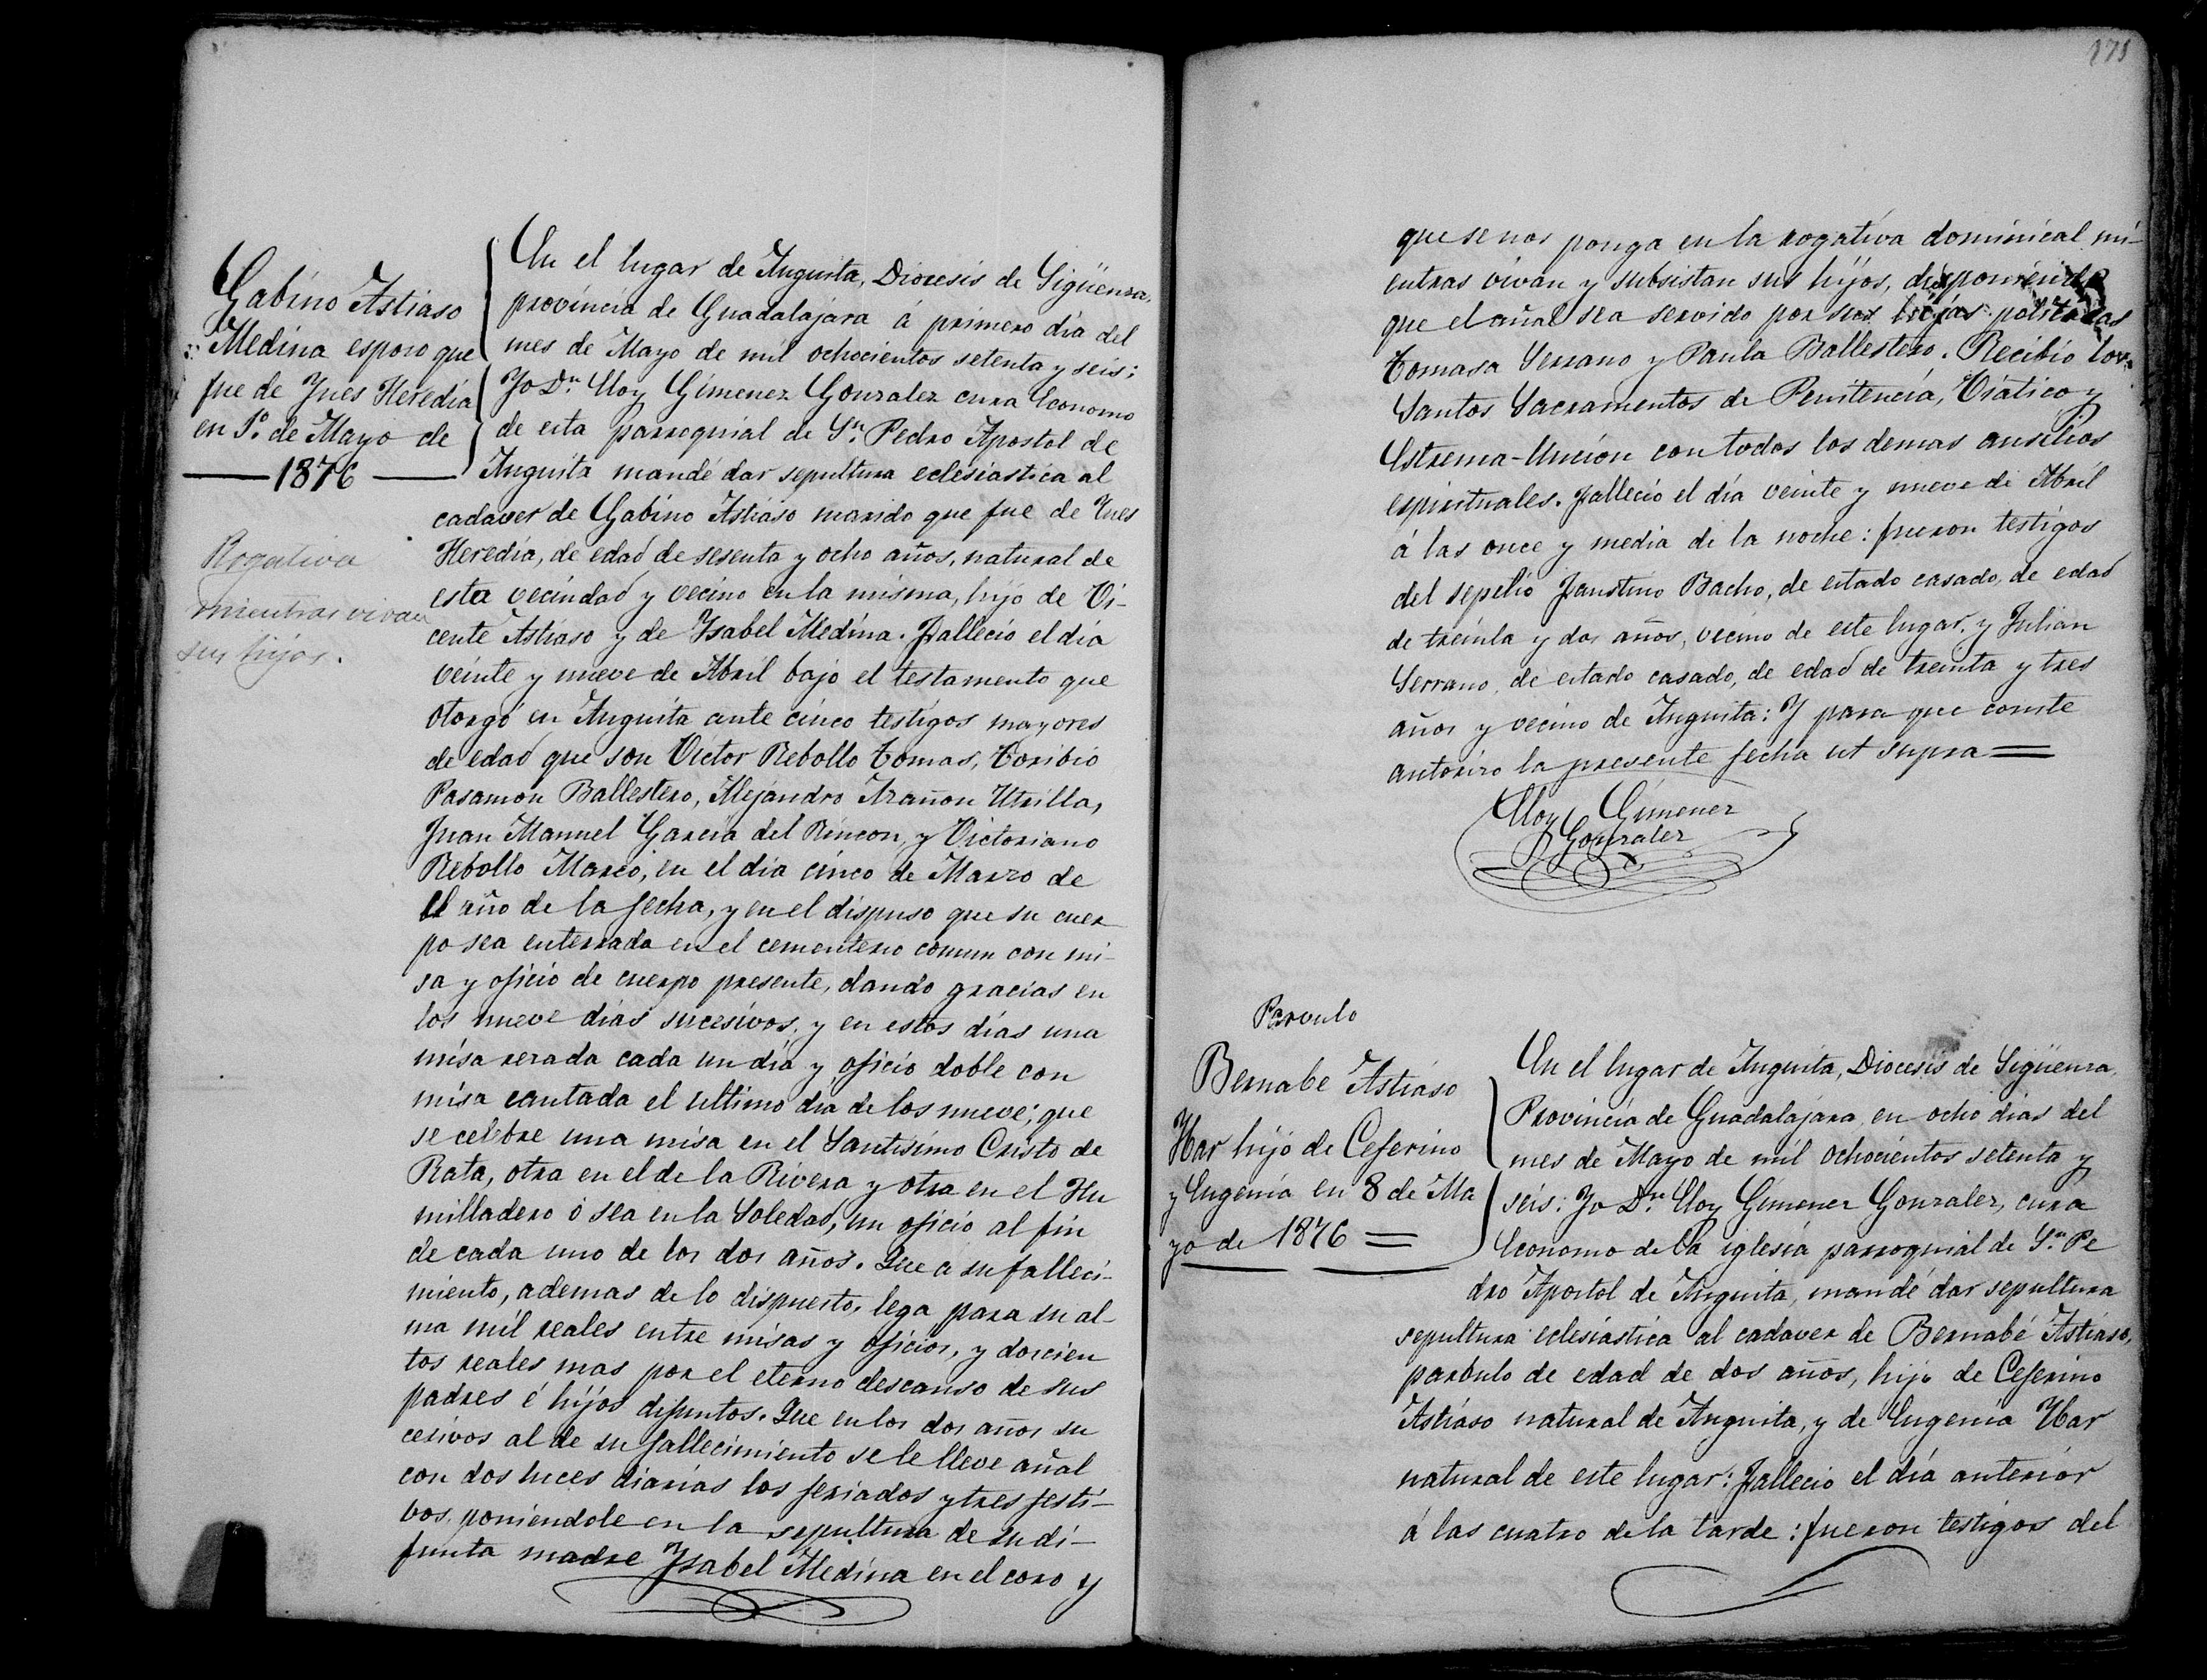 Gabino Astiaso
Medina esposo que
fue de Ynes Heredia
en 1º de Mayo de
1876
Rogativa
mientras vivan
sus hijos.
En el lugar de Anguita, Diocesis de Sigüenza,
provincia de Guadalajara á primero dia del
mes de Mayo de mil ochocientos setenta y seis:
Yo Dn. Eloy Gimenez Gonzalez cura Economo
de esta parroquial de Sn. Pedro Apostol de
Anguita mandé dar sepultura eclesiastica al
cadaver de Gabino Astiaso marido que fue de Ynes
Heredia, de edad de sesenta y ocho años, natural de
esta vecindad y vecino en la misma, hijo de Vi-
cente Astiaso y de Ysabel Medina. Falleció el dia
veinte y nueve de Abril bajo el testamento que
otorgó en Anguita ante cinco testigos mayores
de edad que son Victor Rebollo Tomas, Toribio
Pasamon Ballestero, Alejandro Arañon Utrilla,
Juan Manuel Garcia del Rincon, y Victoriano
Rebollo Marco, en el dia cinco de Marzo de
el año de la fecha, y en el dispuso que su cuer
po sea enterrada en el cementerio comun con mi-
sa y oficio de cuerpo presente, dando gracias en
los nueve dias sucesivos, y en estos dias una
misa rezada cada un dia y oficio doble con
misa cantada el ultimo dia de los nueve; que
se celebre una misa en el Santisimo Cristo de
Rata, otra en el de la Rivera y otra en el Hu
milladero ó sea en la Soledad, un oficio al fin
de cada uno de los dos años. Que a su falleci-
miento, ademas de lo dispuesto, lega para su al-
ma mil reales entre misas y oficios, y doscien
tos reales mas por el eterno descanso de sus
padres é hijos difuntos. Que en los dos años su
cesivos al de su fallecimiento se le lleve añal
con dos luces diarias los feriados y tres festi-
vos, poniendole en la sepultura de su di-
funta madre Ysabel Medina en el coro y
que se nos ponga en la rogativa dominical mi-
entras vivan y subsistan sus hijos, disponiendo
que el añal sea servido por sus hijas politicas
Tomasa Serrano y Paula Ballestero. Recibió los
Santos Sacramentos de Penitencia, Viatico y
Estrema-Uncion con todos los demas ausilios
espirituales. Falleció el dia veinte y nueve de Abril
á las once y media de la noche: fueron testigos
del sepelio Faustino Bacho, de estado casado, de edad
de treinta y dos años, vecino de este lugar, y Julian
Serrano, de estado casado, de edad de treinta y tres
años y vecino de Anguita: Y para que conste
autorizo la presente fecha ut supra=
Eloy Gimenez
Gonzalez
Parvulo
Bernabe Astiaso
Ybar hijo de Ceferino
y Eugenia en 8 de Ma
yo de 1876=
En el lugar de Anguita, Diocesis de Sigüenza,
Provincia de Guadalajara, en ocho dias del
mes de Mayo de mil ochocientos setenta y
seis: Yo Dn. Eloy Gimenez Gonzalez, cura
Economo de la iglesia parroquial de Sn. Pe
dro Apostol de Anguita, mandé dar sepultura
sepultura eclesiastica al cadaver de Bernabé Astiaso,
parbulo de edad de dos años, hijo de Ceferino
Astiaso natural de Anguita, y de Eugenia Ybar
natural de este lugar: Falleció el dia anterior
á las cuatro de la tarde: fueron testigos del